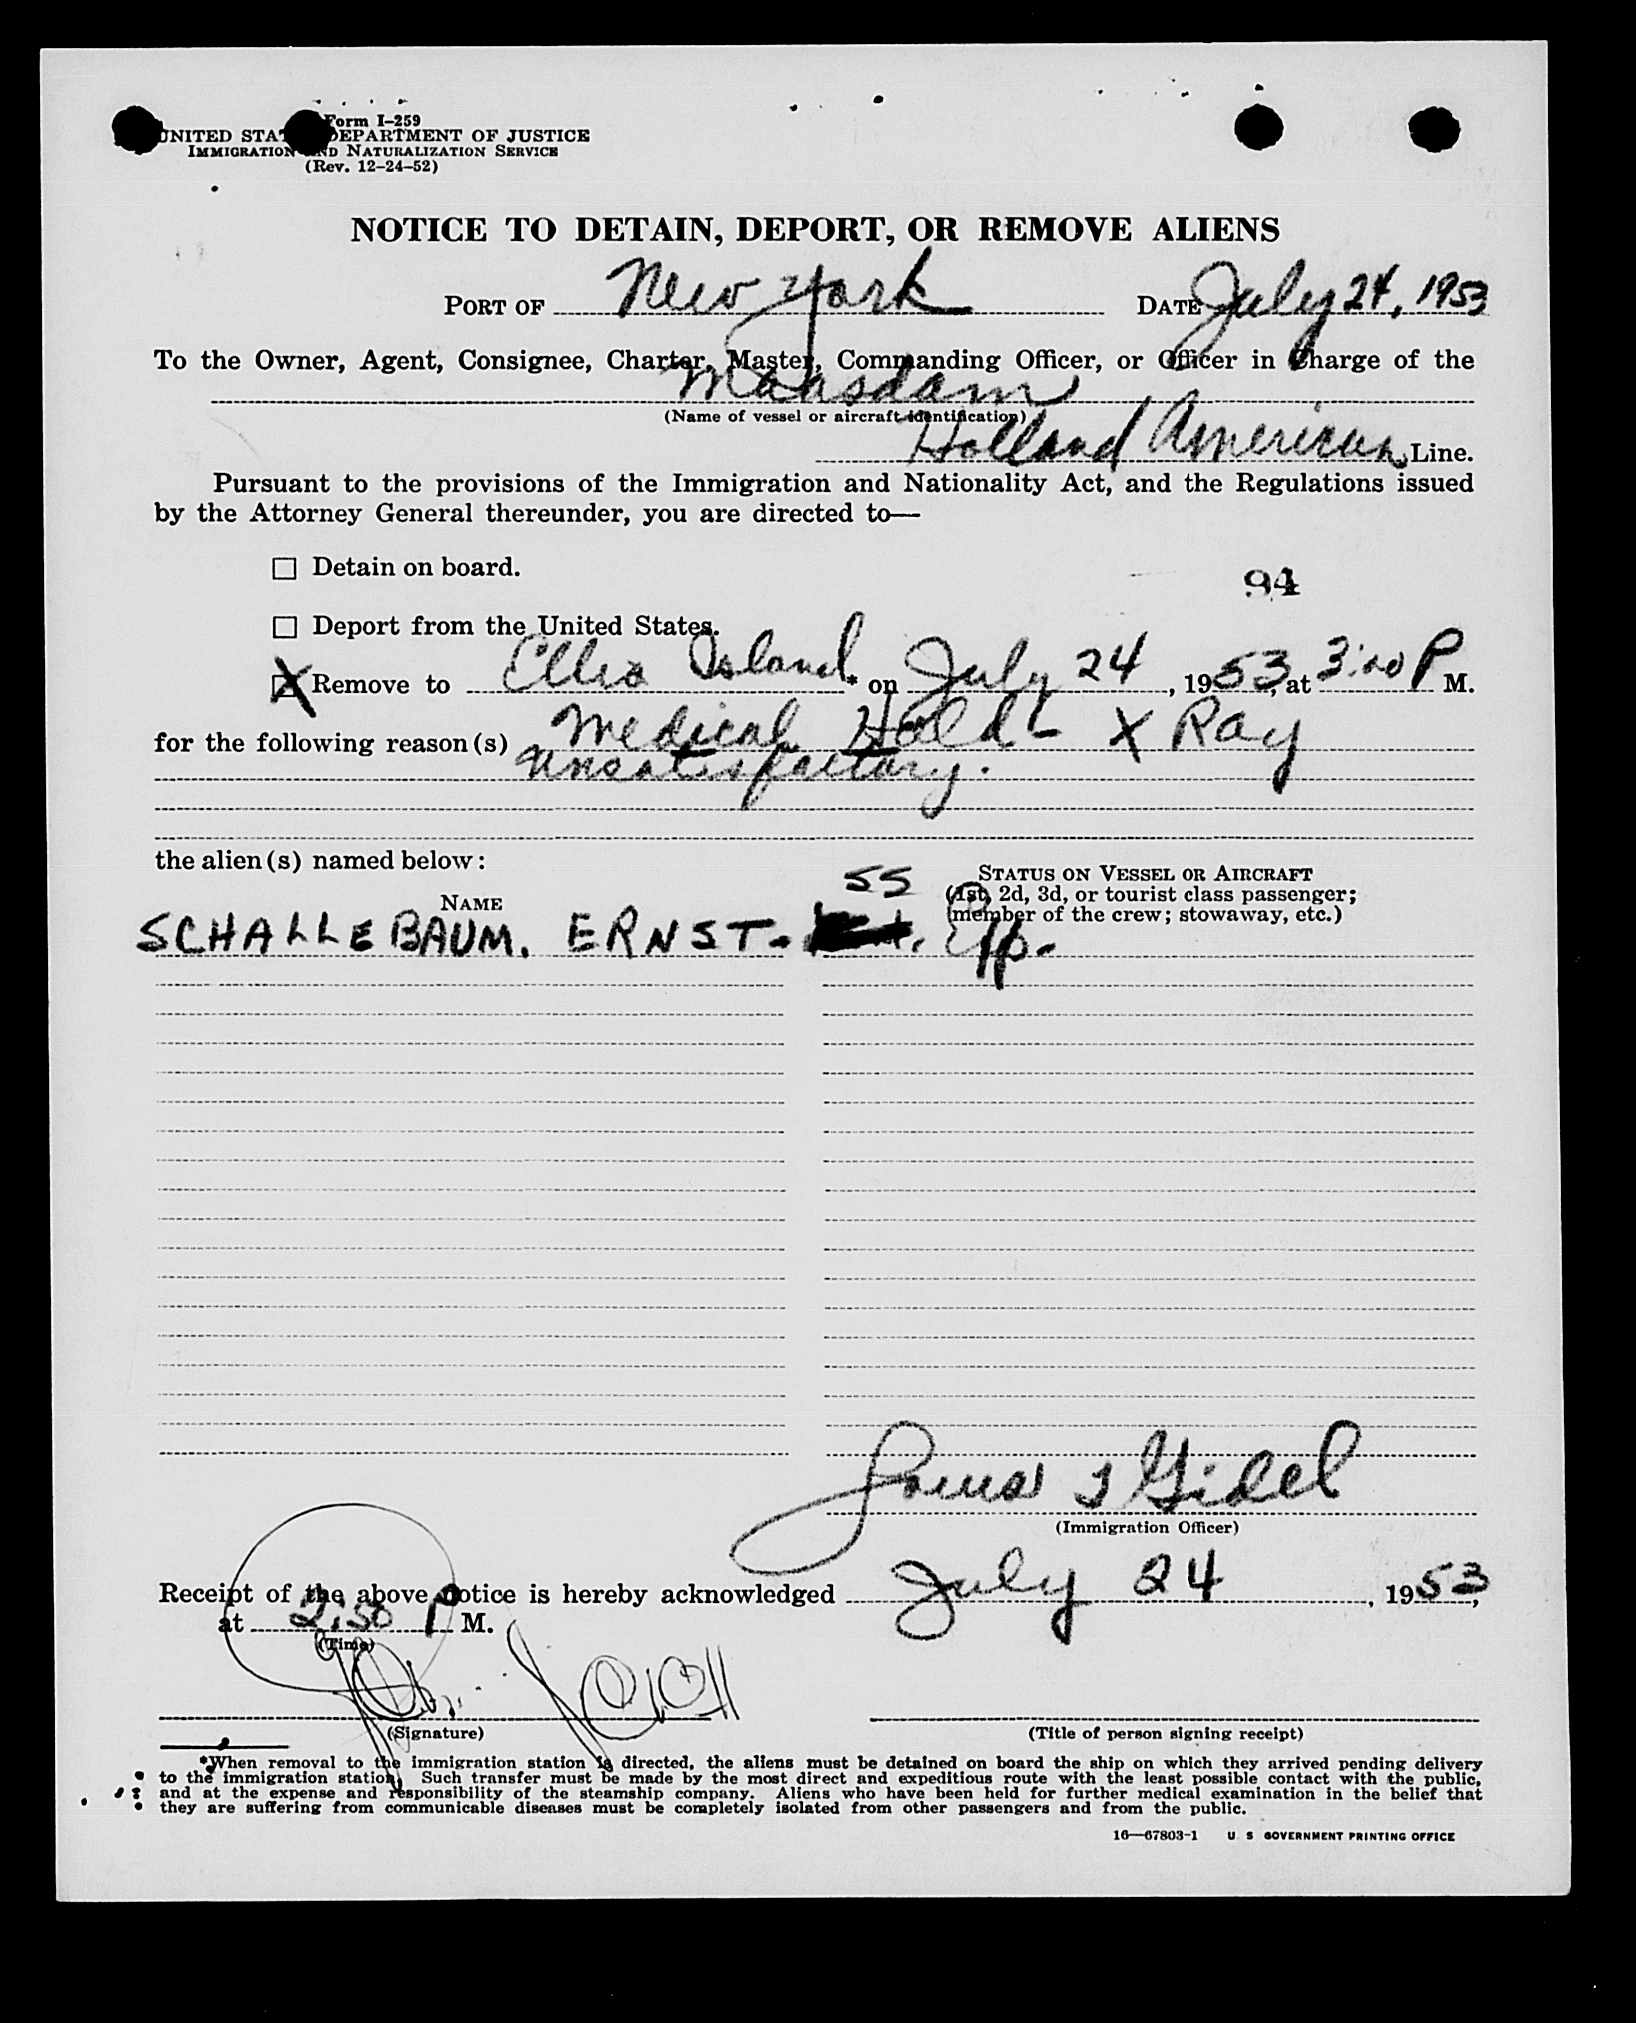 Form I-259
UNITED STATES DEPARTMENT OF JUSTICE
IMMIGRATION AND NATURALIZATION SERVICE
(Rev. 12-24-52)
NOTICE TO DETAIN, DEPORT, OR REMOVE ALIENS
PORT OF New York DATE July 24, 1953
To the Owner, Agent, Consignee, Charter, Master, Commanding Officer, or Officer in Charge of the
Maasdam
(Name of vessel or aircraft identification)
Holland American Line.
Pursuant to the provisions of the Immigration and Nationality Act, and the Regulations issued
by the Attorney General thereunder, you are directed to—
☐ Detain on board.
94
☐ Deport from the United States.
☒ Remove to Ellis Island * on July 24, 1953, at 3:00 P M.
for the following reason(s) Medical Hold - X Ray
unsatisfactory.
the alien(s) named below:
NAME
55
STATUS ON VESSEL OR AIRCRAFT
(1st, 2d, 3d, or tourist class passenger;
member of the crew; stowaway, etc.)
SCHALLEBAUM, ERNST.
Louis J Gidel
(Immigration Officer)
Receipt of the above notice is hereby acknowledged July 24, 1953,
at 2:50 P M.
(Time)
(Signature) (Title of person signing receipt)
*When removal to the immigration station is directed, the aliens must be detained on board the ship on which they arrived pending delivery
to the immigration station. Such transfer must be made by the most direct and expeditious route with the least possible contact with the public,
and at the expense and responsibility of the steamship company. Aliens who have been held for further medical examination in the belief that
they are suffering from communicable diseases must be completely isolated from other passengers and from the public.
16—67803-1 U S GOVERNMENT PRINTING OFFICE